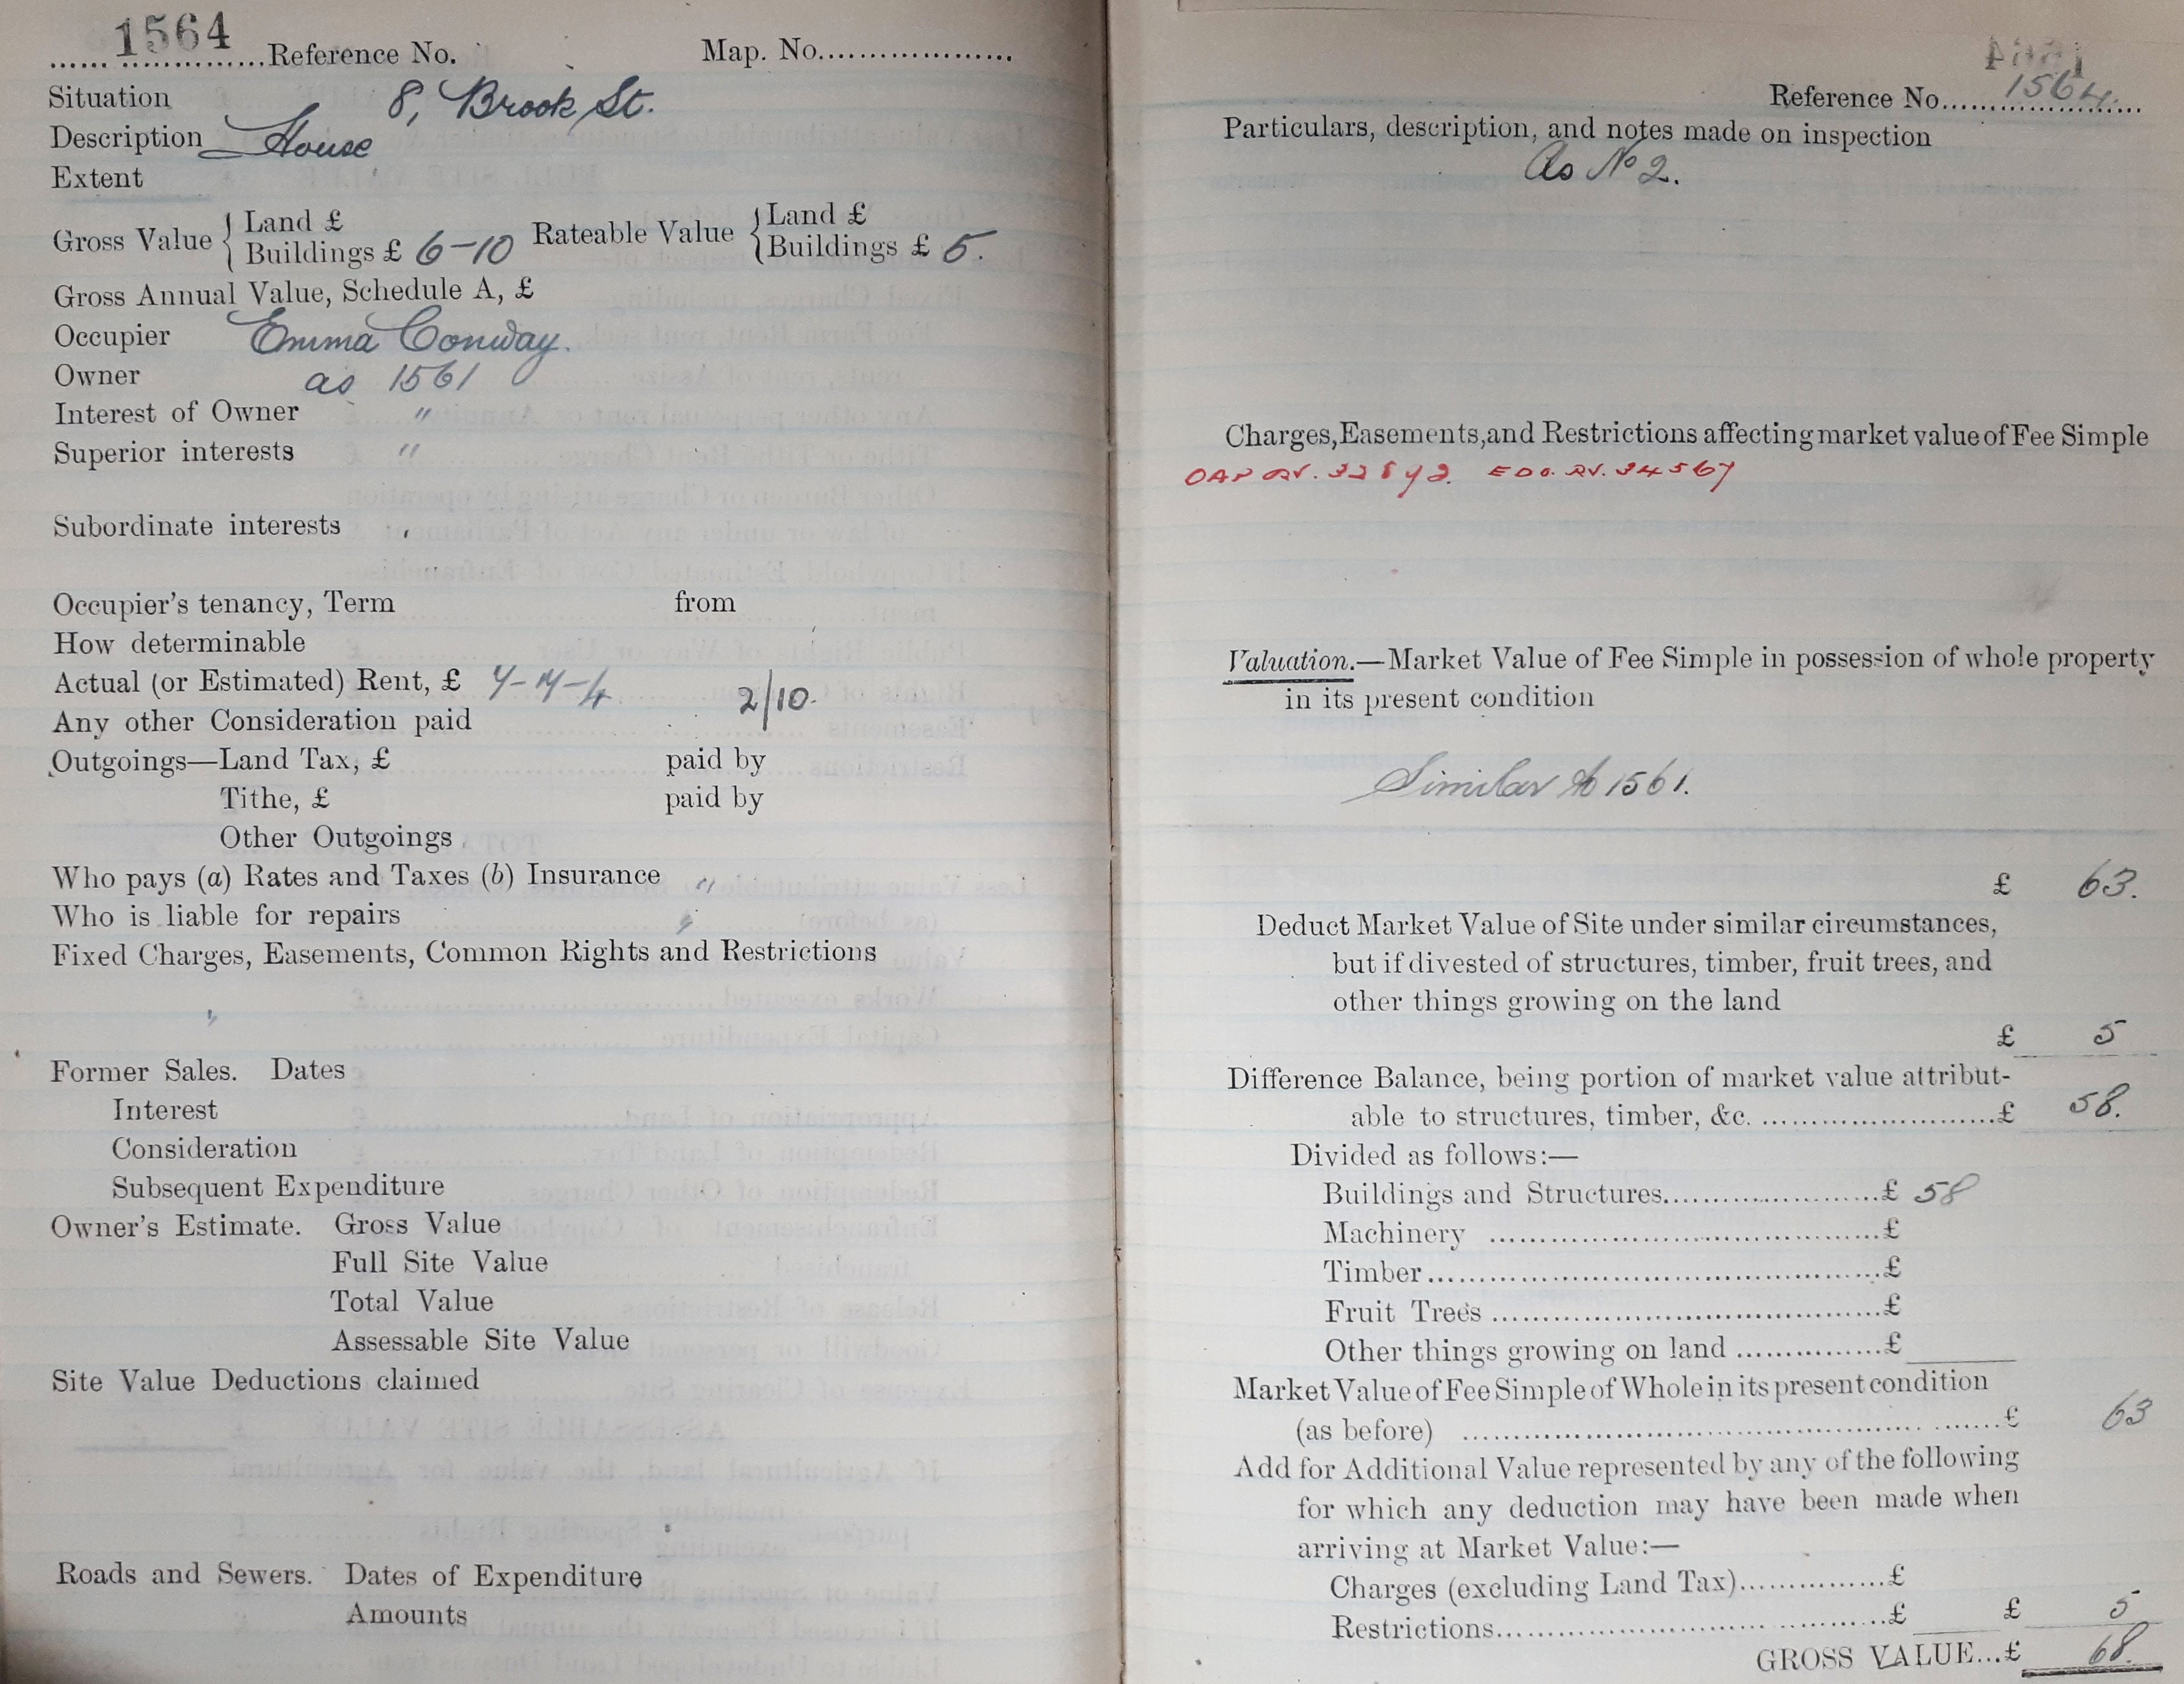 1564 Reference No. Map. No.
Situation 8, Brook St.
Description House
Extent
Gross Value { Land £ Rateable Value { Land £
Buildings £ 6-10 Buildings £ 5.
Gross Annual Value, Schedule A, £
Occupier Emma Conway.
Owner as 1561
Interest of Owner "
Superior interests "
Subordinate interests
Occupier's tenancy, Term from
How determinable
Actual (or Estimated) Rent, £ 2/10.
Any other Consideration paid
Outgoings—Land Tax, £ paid by
Tithe, £ paid by
Other Outgoings
Who pays (a) Rates and Taxes (b) Insurance "
Who is liable for repairs "
Fixed Charges, Easements, Common Rights and Restrictions
"
Former Sales. Dates
Interest
Consideration
Subsequent Expenditure
Owner's Estimate. Gross Value
Full Site Value
Total Value
Assessable Site Value
Site Value Deductions claimed
Roads and Sewers. Dates of Expenditure
Amounts
Reference No. 1564.
Particulars, description, and notes made on inspection
As No 2.
Charges, Easements, and Restrictions affecting market value of Fee Simple
Valuation.—Market Value of Fee Simple in possession of whole property
in its present condition
Similar to 1561.
£ 63.
Deduct Market Value of Site under similar circumstances,
but if divested of structures, timber, fruit trees, and
other things growing on the land
£ 5
Difference Balance, being portion of market value attribut-
able to structures, timber, &c. £ 58.
Divided as follows:—
Buildings and Structures £ 58
Machinery £
Timber £
Fruit Trees £
Other things growing on land £
Market Value of Fee Simple of Whole in its present condition
(as before) £ 63
Add for Additional Value represented by any of the following
for which any deduction may have been made when
arriving at Market Value:—
Charges (excluding Land Tax) £
Restrictions £ £ 5
GROSS VALUE...£ 68.